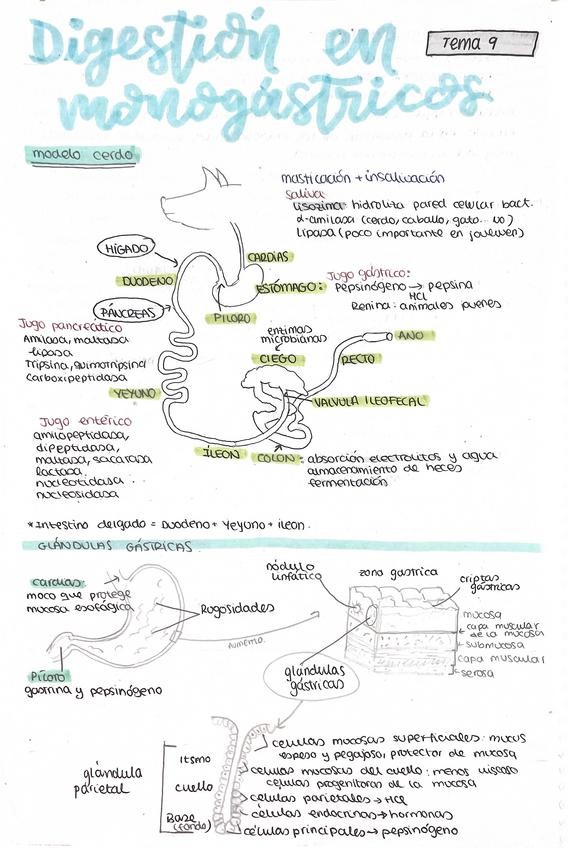 Digestión en
monogástricos
Tema 9
modelo cerdo
masticación + insalivación
saliva
lisozima: hidroliza pared celular bact.
α-amilasa (cerdo, caballo, gato... NO)
lipasa (poco importante en joulwer)
HÍGADO
CARDIAS
DUODENO
ESTÓMAGO:
Jugo gástrico:
Pepsinógeno → pepsina
HCl
Renina: animales puenes
PÁNCREAS
PILORO
Jugo pancreático
Amilasa, maltasa
lipasa
Tripsina, quimotripsina
carboxipeptidasa
enzimas
microbianas
CIEGO
ANO
RECTO
YEYUNO
VALVULA ILEOFECAL
Jugo entérico
amilopeptidasa,
dipeptidasa,
maltasa, sacarasa
lactasa.
nucleotidasa
nucleosidasa
ÍLEON
COLON: absorción electrolitos y agua
almacenamiento de heces
fermentación
*Intestino delgado = Duodeno + Yeyuno + íleon.
GLÁNDULAS GÁSTRICAS
cardias:
moco que protege
mucosa esofágica
Rugosidades
AUMENTO
Píloro
gastrina y pepsinógeno
nódulo
linfático
zona gastrica
criptas
gástricas
mucosa
capa muscular
de la mucosa
submucosa
capa muscular
serosa
glándulas
gástricas
glándula
parietal
Itsmo
cuello
Base
(fondo)
células mucosas superficiales: mucus
espeso y pegajoso, protector de mucosa
células mucosas del cuello: menos viscoso
células progenitoras de la mucosa
células parietales → HCl
células endocrinas → hormonas
células principales → pepsinógeno